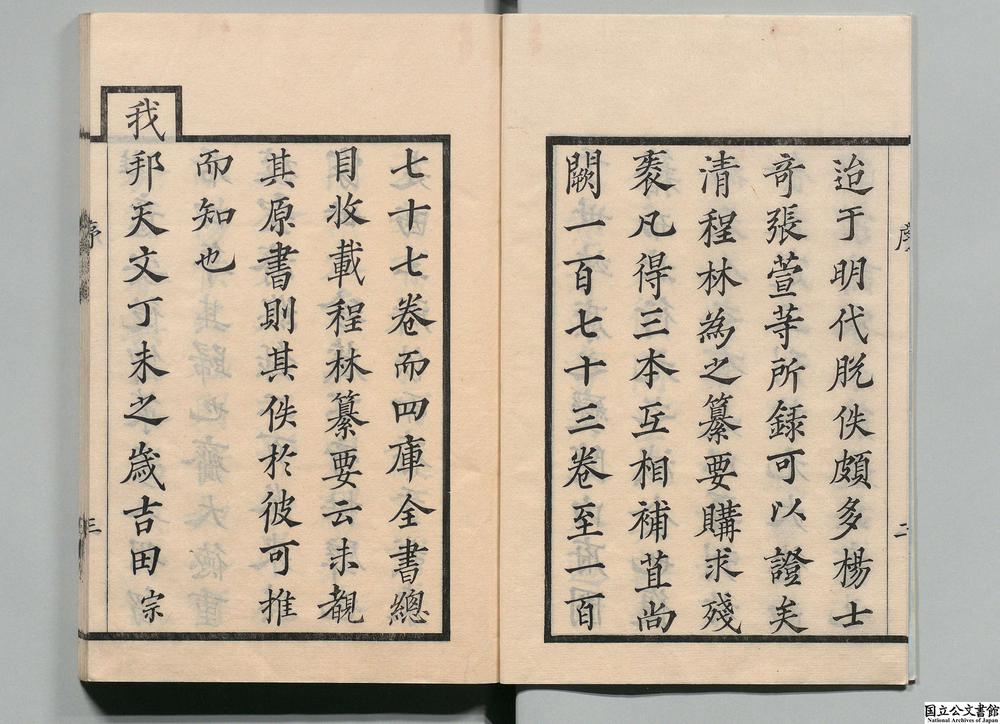 迨于明代脫佚頗多楊士
奇張萱等所錄可以證矣
清程林為之纂要購求殘
袠凡得三本互相補苴尚
闕一百七十三卷至一百
七十七卷而四庫全書總
目收載程林纂要云未覩
其原書則其佚於彼可推
而知也
我
邦天文丁未之歲吉田宗
序
二
序
三
国立公文書館
National Archives of Japan